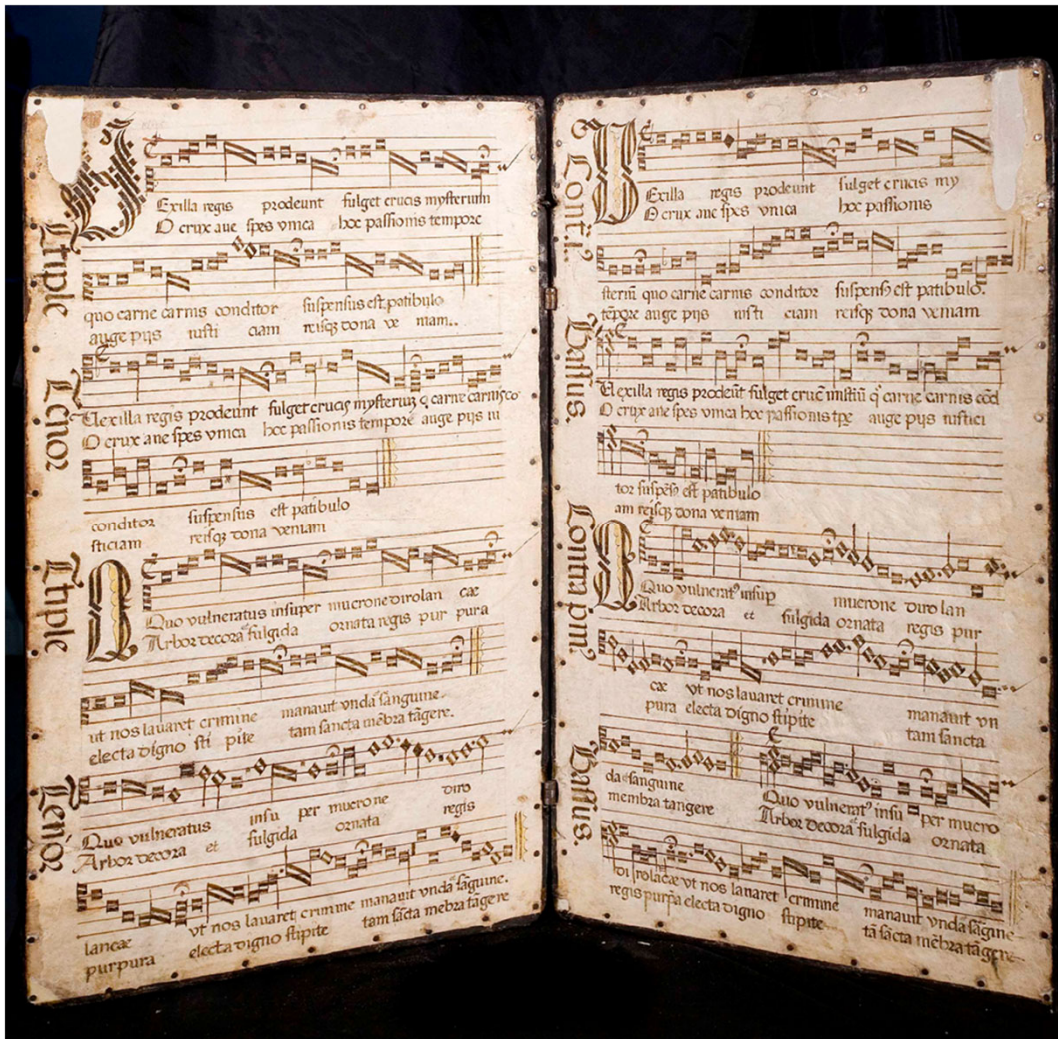 Tiple
Exilla regis prodeunt fulget crucis mysterium
O crux aue spes vnica hoc passionis tempore
quo carne carnis conditor suspensus est patibulo
auge pijs iusti ciam reisq; dona ve niam..
Tenor
Uexilla regis prodeunt fulget crucis mysteriuȝ q carne carnis co
O crux aue spes vnica hoc passionis tempore auge pijs iu
conditor suspensus est patibulo
sticiam reisq; dona veniam
Tiple
Quo vulneratus insuper mucrone diro lan cæ
Arbor decora et fulgida ornata regis pur pura
ut nos lauaret crimine manauit vnda sanguine.
electa digno sti pite tam sancta mēbra tāgere.
Tenor
Quo vulneratus insu per mucrone diro
Arbor decora et fulgida ornata regis
lancæ vt nos lauaret crimine manauit vnda sāguine.
purpura electa digno stipite tam sācta mēbra tāgere
Exilla regis prodeunt fulget crucis my
O crux aue spes vnica hoc passionis
steriū quo carne carnis conditor suspensꝰ est patibulo.
tēpore auge pijs iusti ciam reisq; dona veniam
Bassus.
Uexilla regis prodeūt fulget crucꝭ carne carnis cōd
O crux aue spes vnica hoc passionis tpe auge pijs iustici
tor suspēsꝰ est patibulo
am reisq; dona veniam
Quo vulneratꝰ insup mucrone diro lan
Arbor decora et fulgida ornata regis pur
cæ vt nos lauaret crimine manauit vn
pura electa digno stipite tam sancta
da sanguine
membra tangere
Bassus.
Quo vulneratꝰ insu per mucro
Arbor decora et fulgida ornata
lācæ vt nos lauaret crimine manauit vnda sāguine
regis purpura electa digno stipite tā sācta mēbra tāgere